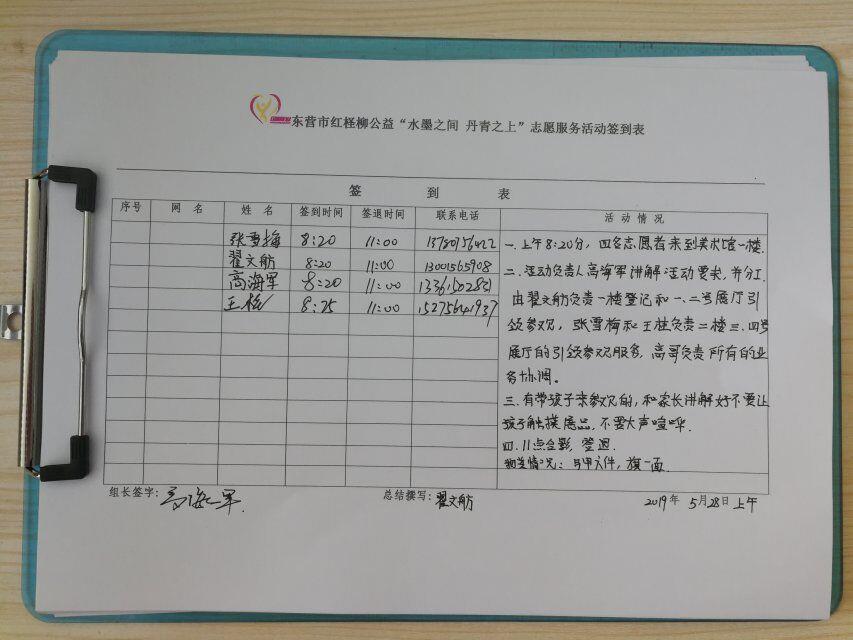 东营市红柽柳公益“水墨之间 丹青之上”志愿服务活动签到表
签 到 表
序号 网 名 姓 名 签到时间 签退时间 联系电话 活 动 情 况
张雪梅 8:20 11:00
翟文舫 8:20 11:00 13001565908
高海军 8:20 11:00
王桂 8:25 11:00 15275641937
一.上午8:20分,四名志愿者来到美术馆一楼.
二.活动负责人高海军讲解活动要求,并分工
由翟文舫负责一楼登记和一.二号展厅引
领参观,张雪梅和王桂负责二楼三.四号
展厅的引领参观服务,高哥负责所有的业
务协调。
三.有带孩子来参观的,和家长讲解好不要让
孩子触摸展品.不要大声喧哗.
四.11点合影,签退.
物资情况:马甲六件,旗一面.
组长签字:高海军 总结撰写:翟文舫 2019年 5月28日上午